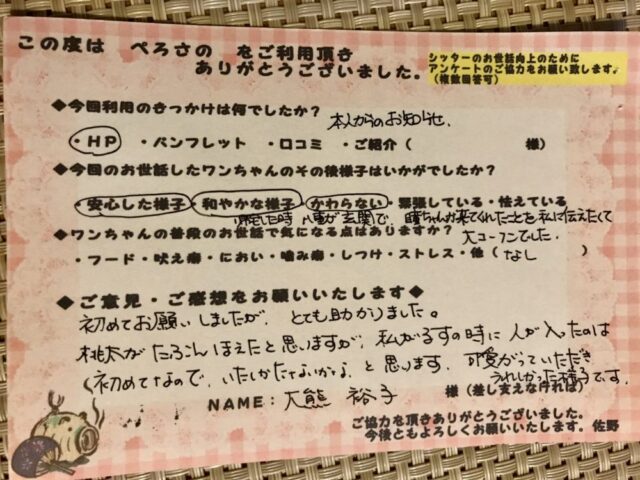 この度は ぺろさの をご利用頂き
ありがとうございました。
シッターのお世話向上のために
アンケートのご協力をお願い致します。
(複数回答可)
◆今回利用のきっかけは何でしたか?
本人からのお知らせ、
・HP ・パンフレット ・口コミ ・ご紹介( 様)
◆今回のお世話したワンちゃんのその後様子はいかがでしたか?
・安心した様子・和やかな様子・かわらない・緊張している・怯えている
帰宅した時 八重が玄関で、 ちゃんが来てくれたことを私に伝えたくて
大コーフンでした。
◆ワンちゃんの普段のお世話で気になる点はありますか?
・フード・吠え癖・におい・噛み癖・しつけ・ストレス・他(なし)
◆ご意見・ご感想をお願いいたします◆
初めてお願いしましたが、とても助かりました。
桃太がたくさんほえたと思いますが、私がるすの時に人が入ったのは
初めてなので、いたしかたないかな、と思います。可愛がっていただき
うれしかった様子です。
NAME:大熊 裕子 様(差し支えなければ)
ご協力を頂きありがとうございました。
今後ともよろしくお願いいたします。佐野